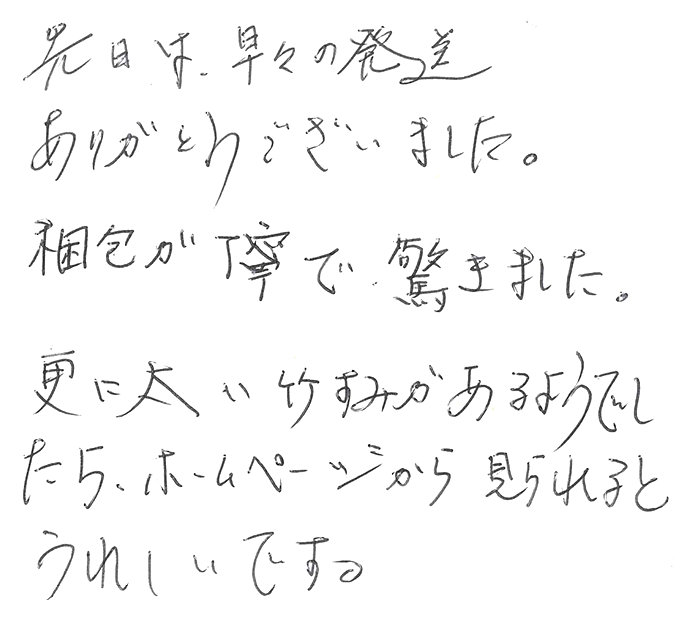 先日は、早々の発送
ありがとうございました。
梱包が丁寧で驚きました。
更に太い竹すみがあるようでし
たら、ホームページから見られると
うれしいです。